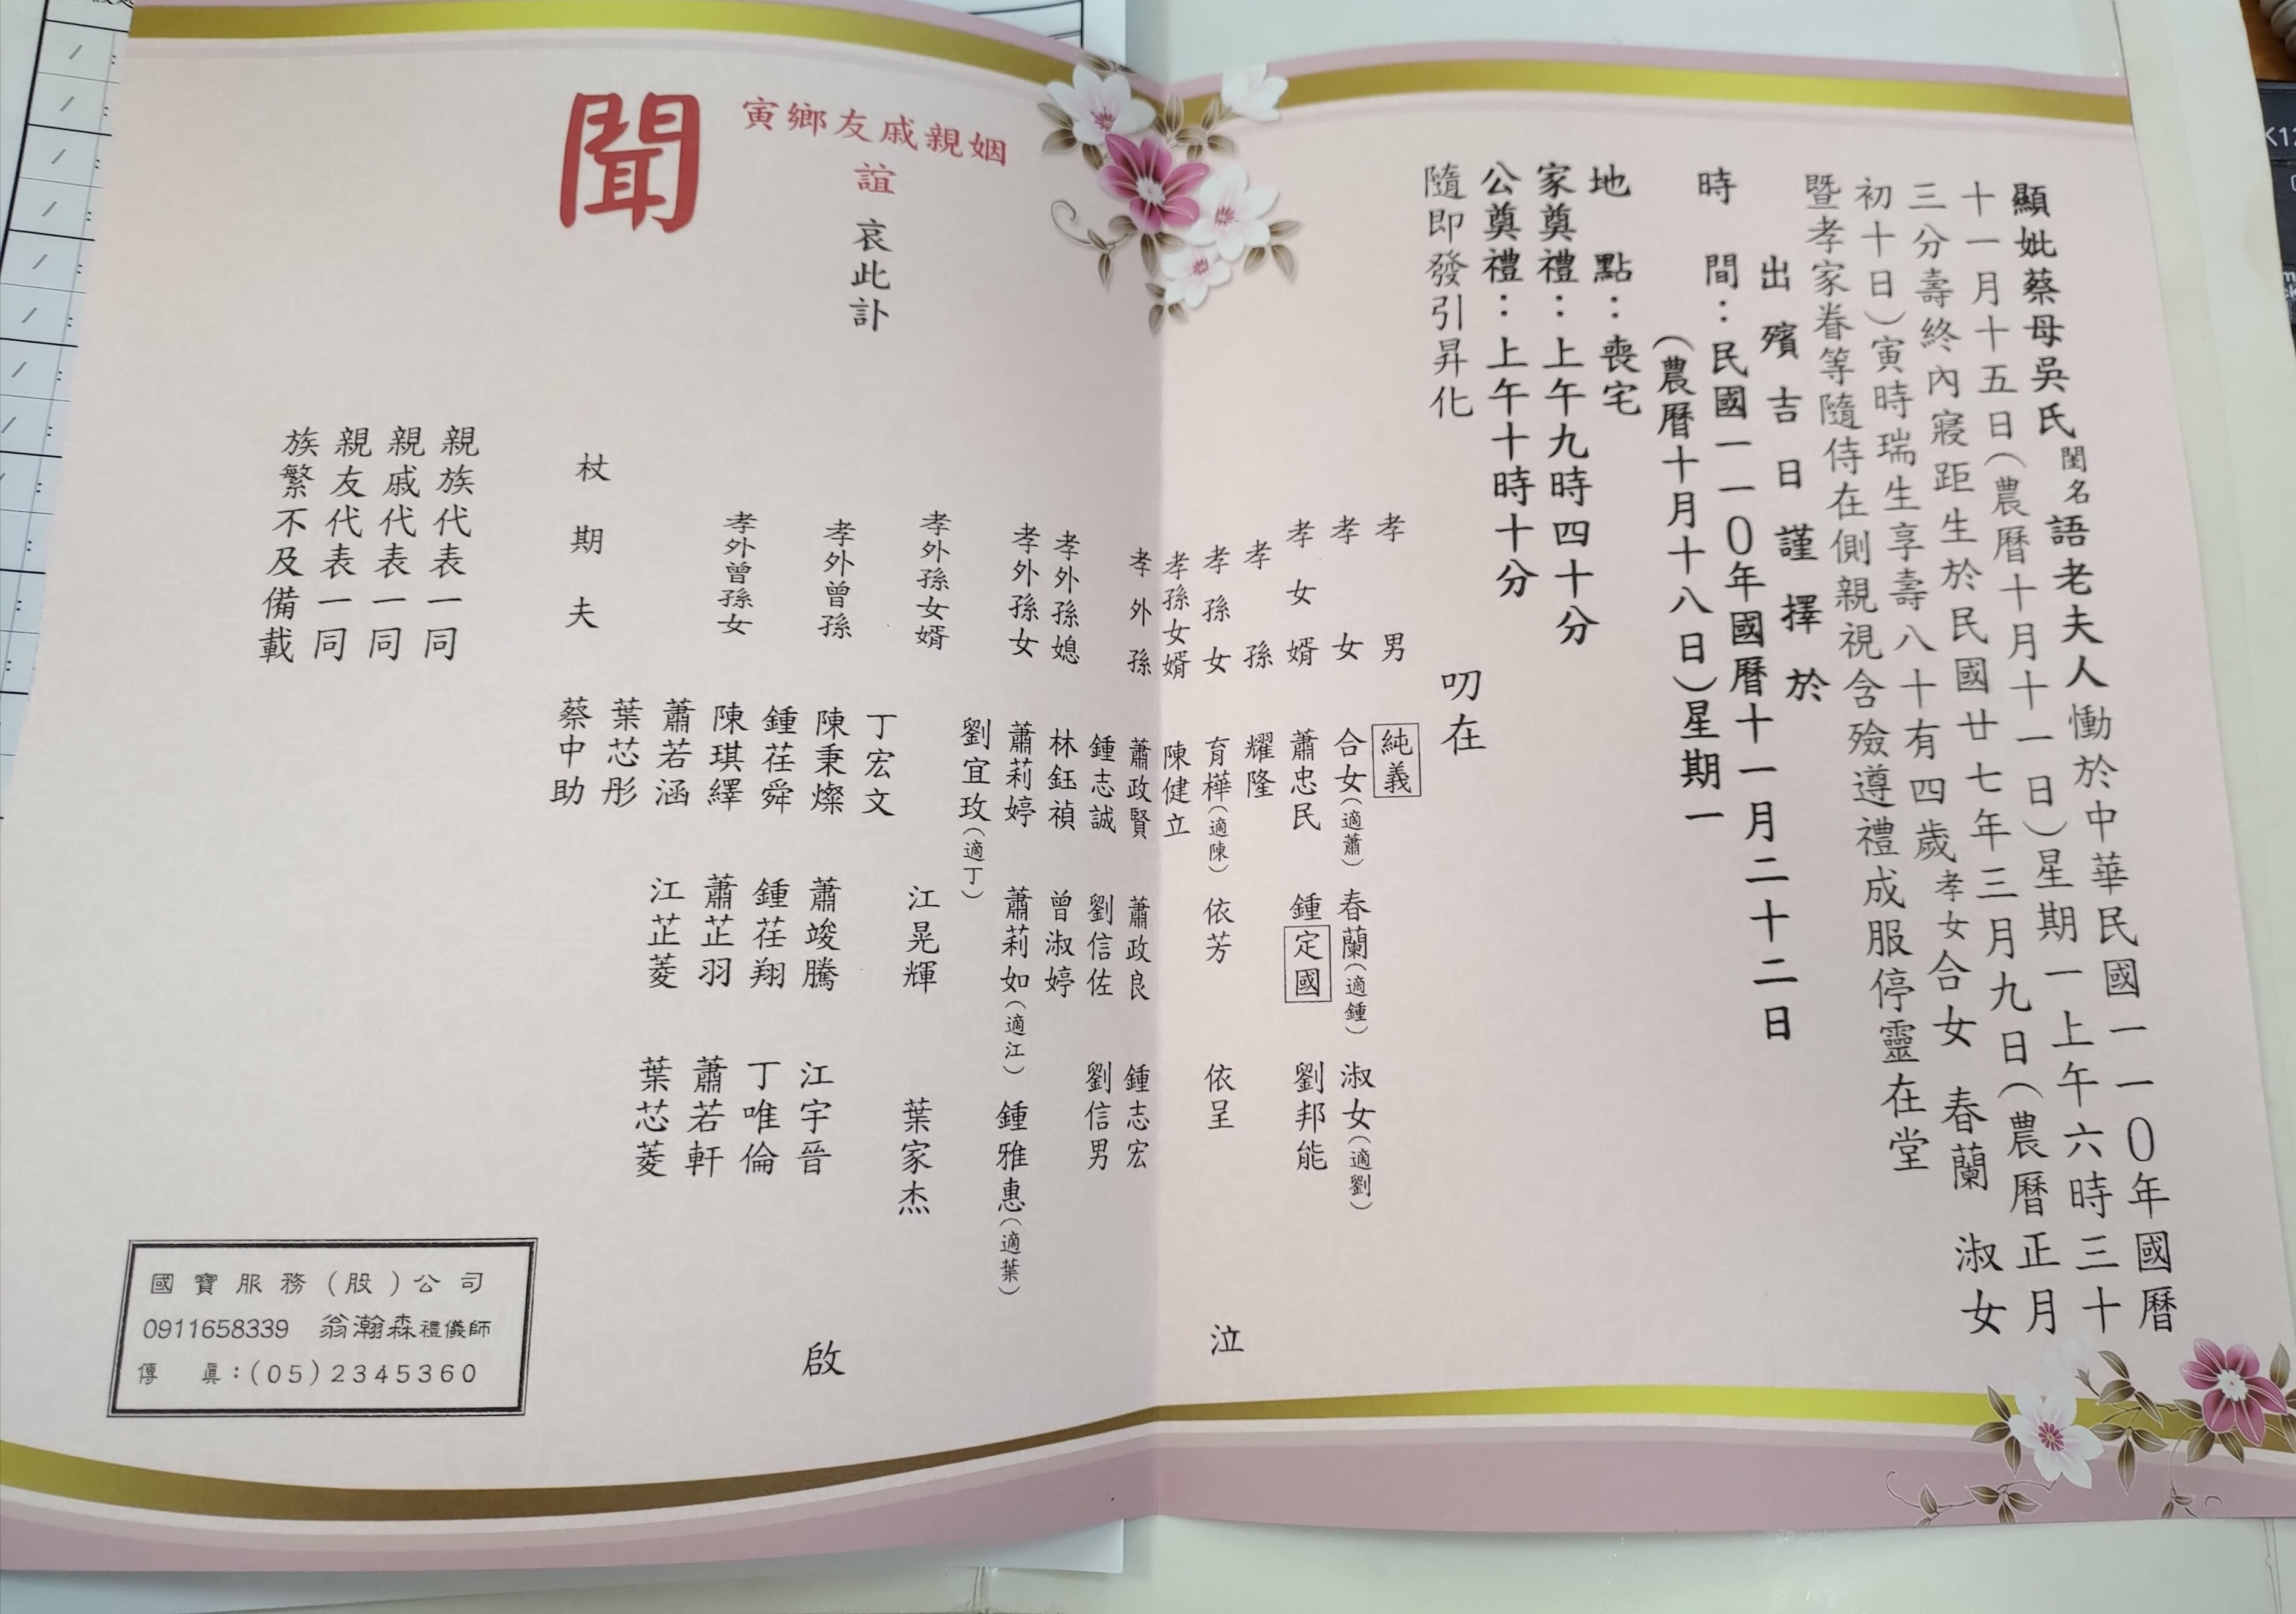 顯妣蔡母吳氏閨名語老夫人慟於中華民國一一０年國曆
十一月十五日（農曆十月十一日）星期一上午六時三十
三分壽終內寢距生於民國廿七年三月九日（農曆正月
初十日）寅時瑞生享壽八十有四歲孝女合女 春蘭 淑女
暨孝家眷等隨侍在側親視含殮遵禮成服停靈在堂
出殯吉日謹擇於
時 間：民國一一０年國曆十一月二十二日
（農曆十月十八日）星期一
地 點：喪宅
家奠禮：上午九時四十分
公奠禮：上午十時十分
隨即發引昇化
叨在
孝男 純義
孝女 合女（適蕭） 春蘭（適鍾） 淑女（適劉）
孝女婿 蕭忠民 鍾定國 劉邦能
孝孫 耀隆
孝孫女 育樺（適陳） 依芳 依呈
孝孫女婿 陳健立
孝外孫 蕭政賢 蕭政良 鍾志宏
鍾志誠 劉信佐 劉信男
孝外孫媳 林鈺禎 曾淑婷
孝外孫女 蕭莉婷 蕭莉如（適江） 鍾雅惠（適葉）
劉宜玫（適丁）
孝外孫女婿 江晃輝 葉家杰
丁宏文
孝外曾孫 陳秉燦 蕭竣騰 江宇晉
鍾荏舜 鍾荏翔 丁唯倫
孝外曾孫女 陳琪繹 蕭芷羽 蕭若軒
蕭若涵 江芷菱 葉芯菱
葉芯彤
杖期夫 蔡中助
泣
啟
姻親戚友鄉寅
誼
哀此訃
聞
親族代表一同
親戚代表一同
親友代表一同
族繁不及備載
國寶服務(股)公司
0911658339 翁瀚森禮儀師
傳 真：(05)2345360